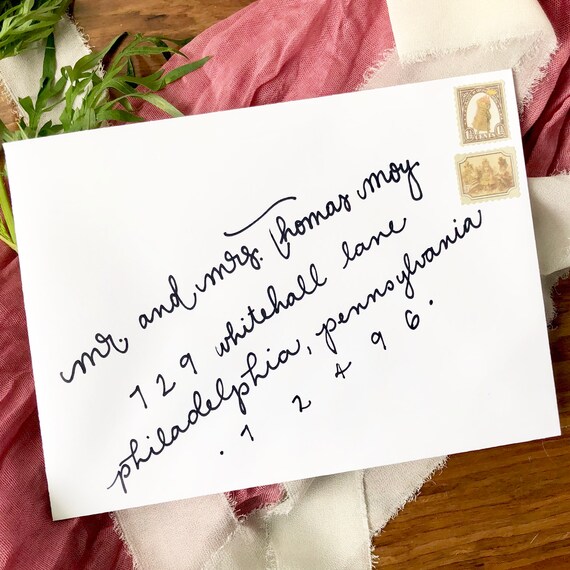 mr. and mrs. thomas moy
729 whitehall lane
philadelphia, pennsylvania
. 7 2 4 9 6 .